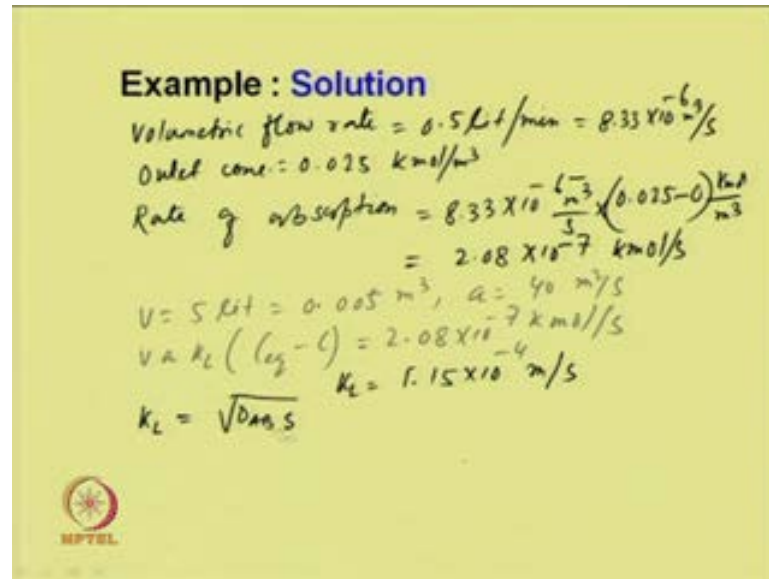 Example : Solution
Volumetric flow rate = 0.5 lit/min = 8.33 x 10^-6 m^3/s
Outlet conc. = 0.025 kmol/m^3
Rate of absorption = 8.33 x 10^-6 m^3/s x (0.025 - 0) kmol/m^3
= 2.08 x 10^-7 kmol/s
V = 5 lit = 0.005 m^3, a = 40 m^2/s
V a k_L (C_eq - C) = 2.08 x 10^-7 kmol/s
k_L = 1.15 x 10^-4 m/s
k_L = √(D_AB S)
NPTEL